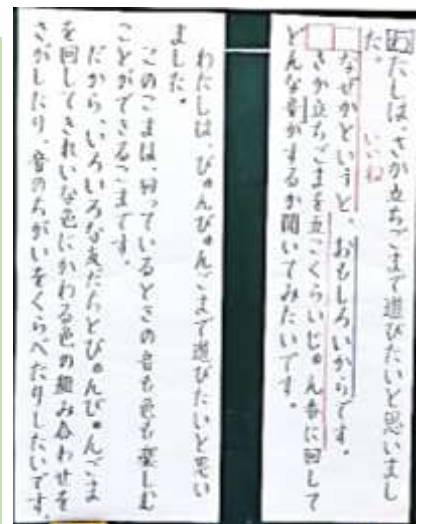 わたしは、さか立ちごまで遊びたいと思いまし
た。
いいね
なぜかというと、おもしろいからです。
さか立ちごまを立こくらいじゅん番に回して
どんな音がするか聞いてみたいです。
わたしは、びゅんびゅんごまで遊びたいと思い
ました。
このこまは、回っているときの音も色も楽しむ
ことができるこまです。
だから、いろいろな友だちとびゅんびゅんごま
を回してきれいな色にかわる色の組み合わせを
さがしたり、音のちがいをくらべたりしたいです。